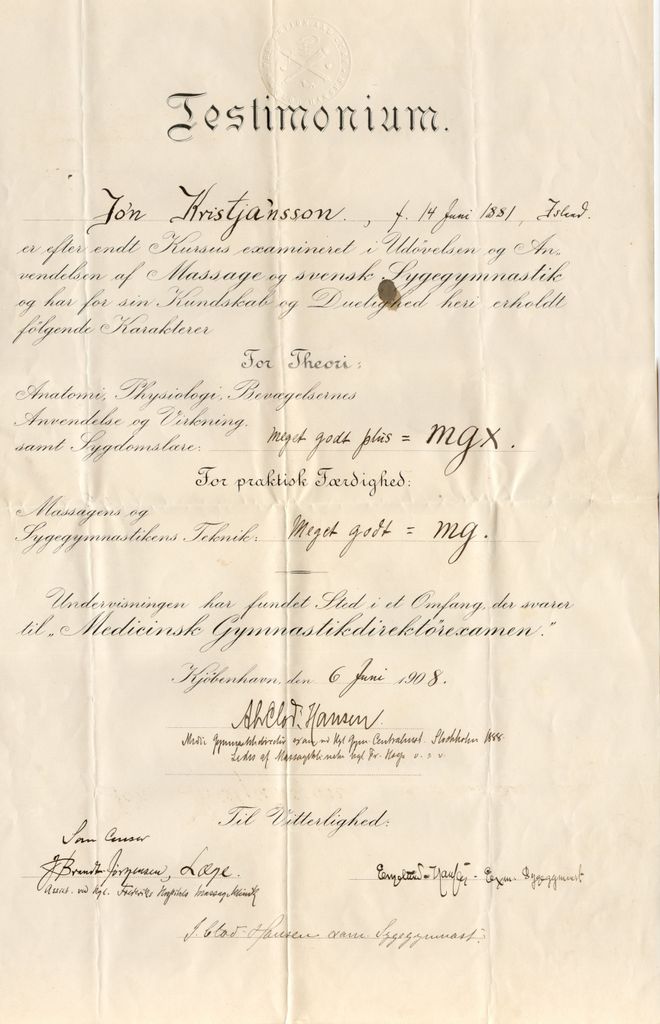 Testimonium.
Jón Kristjánsson. , f. 14 Juni 1881, Island.
er efter endt Kursus examineret i Udövelsen og An-
vendelsen af Massage og svensk Sygegymnastik
og har for sin Kundskab og Duelighed heri erholdt
fölgende Karakterer
For Theori:
Anatomi, Physiologi, Bevægelsernes
Anvendelse og Virkning.
samt Sygdomslære: Meget godt plus = mgx.
For praktisk Færdighed:
Massagens og
Sygegymnastikens Teknik: Meget godt = mg.
Undervisningen har fundet Sted i et Omfang, der svarer
til „Medicinsk Gymnastikdirektörexamen."
Kjöbenhavn, den 6 Juni 1908.
Clod-Hansen.
Centralinst. Stockholm 1888
Leder af Fr. Hosp.
Til Vitterlighed:
Som Censor
J Brandt-Jörgensen, Læge.
Assist. ved Kgl. Frederiks Hospitals Massageklinik
Engelsted-Hansen - Exam. Sygegymnast
J. Clod-Hansen exam. Sygegymnast.